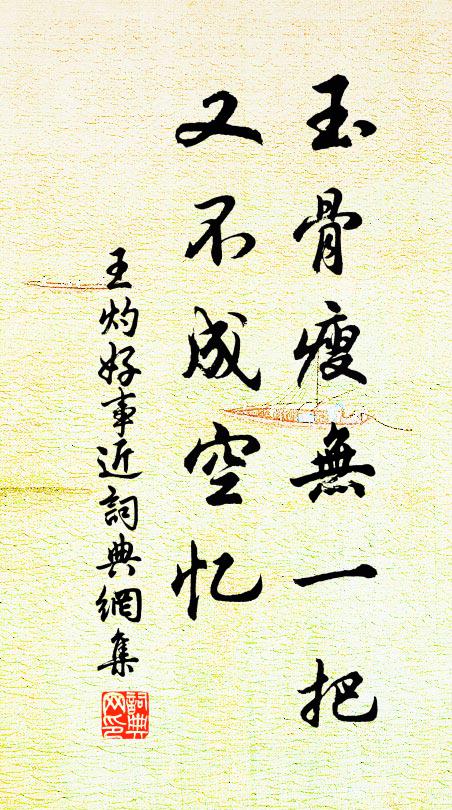 玉骨瘦無一把
又不成空忆
王灼好事近詞典網集
詞典网印